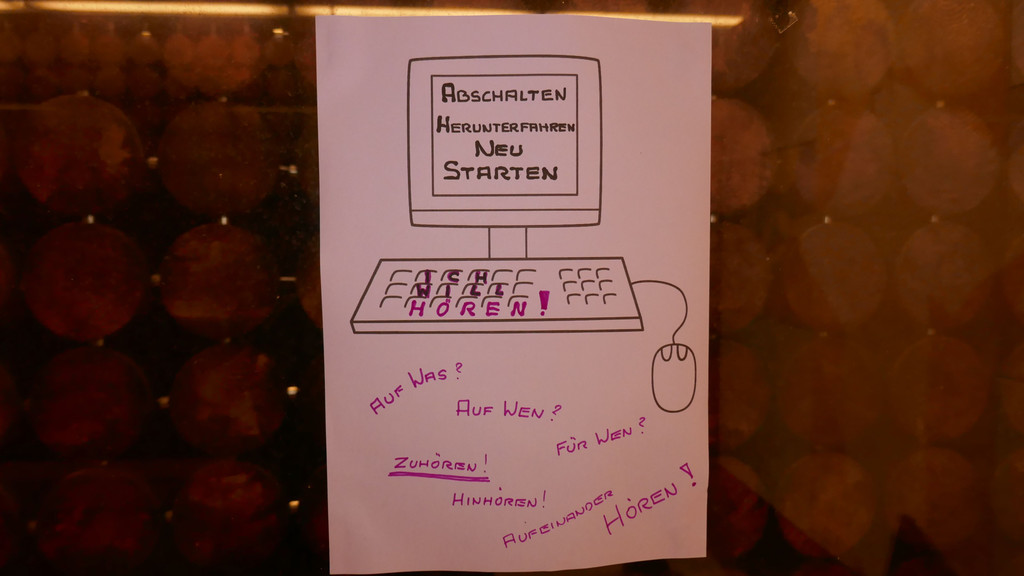 ABSCHALTEN
HERUNTERFAHREN
NEU
STARTEN
ICH
WILL
HÖREN!
AUF WAS?
AUF WEN?
FÜR WEN?
ZUHÖREN!
HINHÖREN!
AUFEINANDER HÖREN!